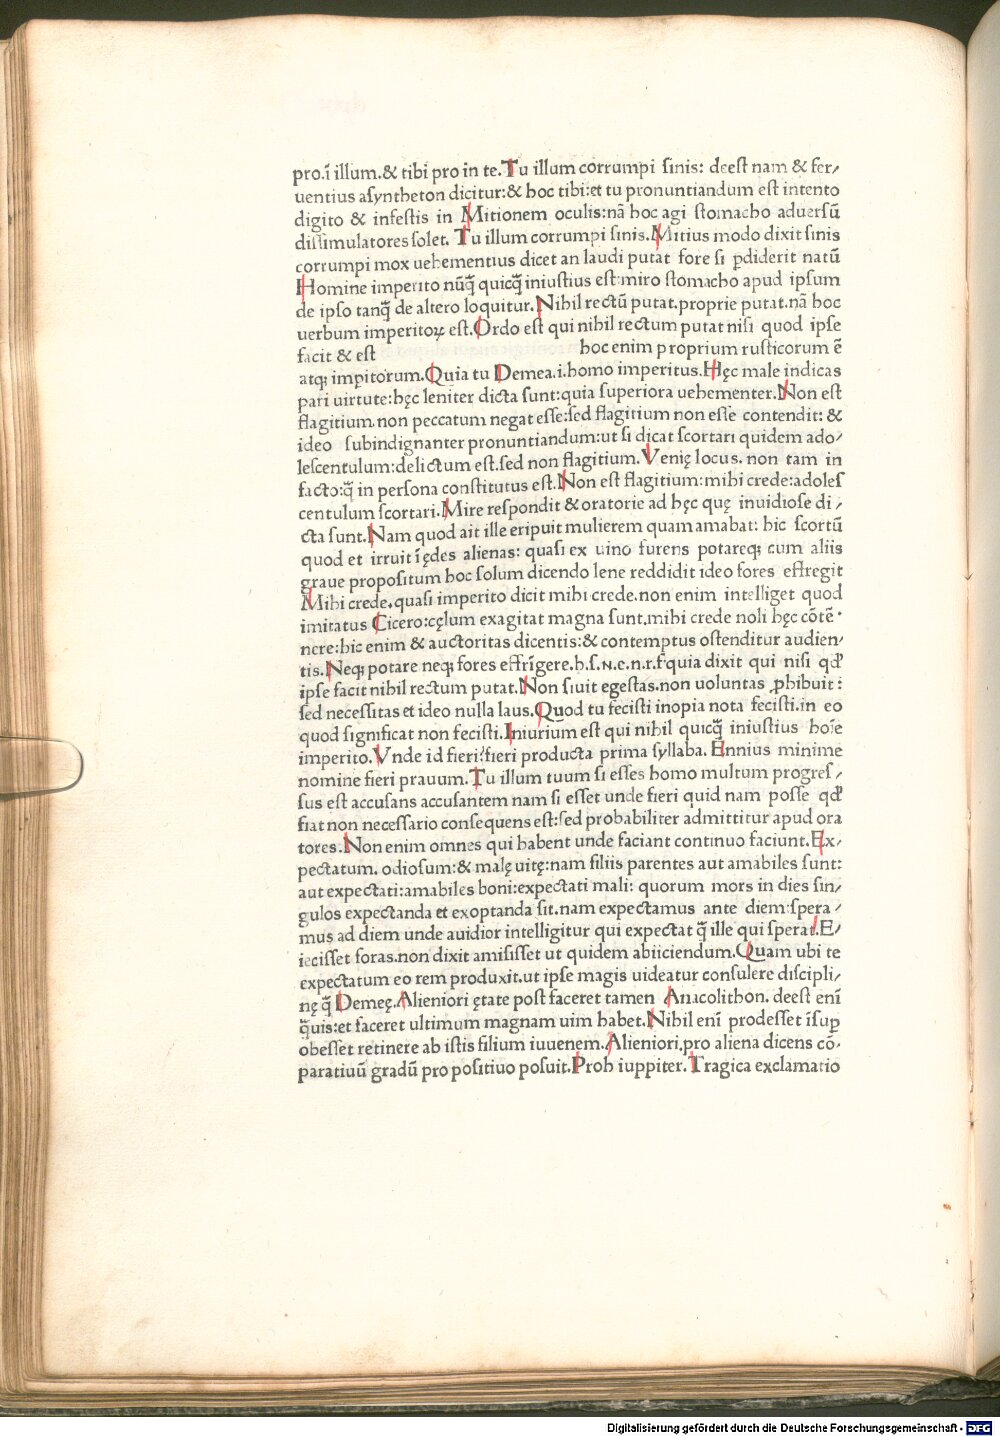 pro.ī illum.& tibi pro in te.Tu illum corrumpi sinis: deest nam & fer/
uentius asyntheton dicitur:& hoc tibi:et tu pronuntiandum est intento
digito & infestis in Mitionem oculis:nā hoc agi stomacho aduersū
dissimulatores solet. Tu illum corrumpi sinis.Mitius modo dixit sinis
corrumpi mox uehementius dicet an laudi putat fore si ꝑdiderit natū
Homine imperito nūq̄ quicq̄ iniustius est:miro stomacho apud ipsum
de ipso tanq̄ de altero loquitur.Nihil rectū putat.proprie putat.nā hoc
uerbum imperitoꝝ est.Ordo est qui nihil rectum putat nisi quod ipse
facit & est hoc enim proprium rusticorum ē
atqꝫ impitorum.Quia tu Demea.i.homo imperitus.Hęc male indicas
pari uirtute:hęc leniter dicta sunt:quia superiora uehementer.Non est
flagitium.non peccatum negat esse:sed flagitium non esse contendit: &
ideo subindignanter pronuntiandum:ut si dicat scortari quidem ado/
lescentulum:delictum est.sed non flagitium.Venię locus. non tam in
facto:q̄ in persona constitutus est.Non est flagitium:mihi crede:adoles
centulum scortari.Mire respondit & oratorie ad hęc quę inuidiose di/
cta sunt.Nam quod ait ille eripuit mulierem quam amabat: hic scortū
quod et irruit ī ędes alienas: quasi ex uino furens potareqꝫ cum aliis
graue propositum hoc solum dicendo lene reddidit ideo fores effregit
Mihi crede.quasi imperito dicit mihi crede.non enim intelliget quod
imitatus Cicero:cęlum exagitat magna sunt.mihi crede noli hęc cōtē-
nere:hic enim & auctoritas dicentis:& contemptus ostenditur audien/
tis.Neqꝫ potare neqꝫ fores effrīgere.h.s.N.e.n.r.f.quia dixit qui nisi qđ
ipse facit nihil rectum putat.Non siuit egestas.non uoluntas ꝓhibuit:
sed necessitas et ideo nulla laus.Quod tu fecisti inopia nota fecisti.in eo
quod significat non fecisti.Iniurium est qui nihil quicq̄ iniustius hoīe
imperito.Vnde id fieri:fieri producta prima syllaba. Ennius minime
nomine fieri prauum.Tu illum tuum si esses homo multum progres/
sus est accusans accusantem nam si esset unde fieri quid nam posse qđ
fiat non necessario consequens est:sed probabiliter admittitur apud ora
tores.Non enim omnes qui habent unde faciant continuo faciunt.Ex/
pectatum. odiosum:& malę uitę:nam filiis parentes aut amabiles sunt:
aut expectati:amabiles boni:expectati mali: quorum mors in dies sin/
gulos expectanda et exoptanda sit.nam expectamus ante diem:spera/
mus ad diem unde auidior intelligitur qui expectat q̄ ille qui sperat.E/
iecisset foras.non dixit amisisset ut quidem abiiciendum.Quam ubi te
expectatum eo rem produxit.ut ipse magis uideatur consulere discipli/
nę q̄ Demeę.Alieniori ętate post faceret tamen Anacolithon. deest enī
q̄uis:et faceret ultimum magnam uim habet.Nihil enī prodesset īsuꝑ
obesset retinere ab istis filium iuuenem.Alieniori.pro aliena dicens cō-
paratiuū gradū pro positiuo posuit.Proh iuppiter.Tragica exclamatio
Digitalisierung gefördert durch die Deutsche Forschungsgemeinschaft - DFG